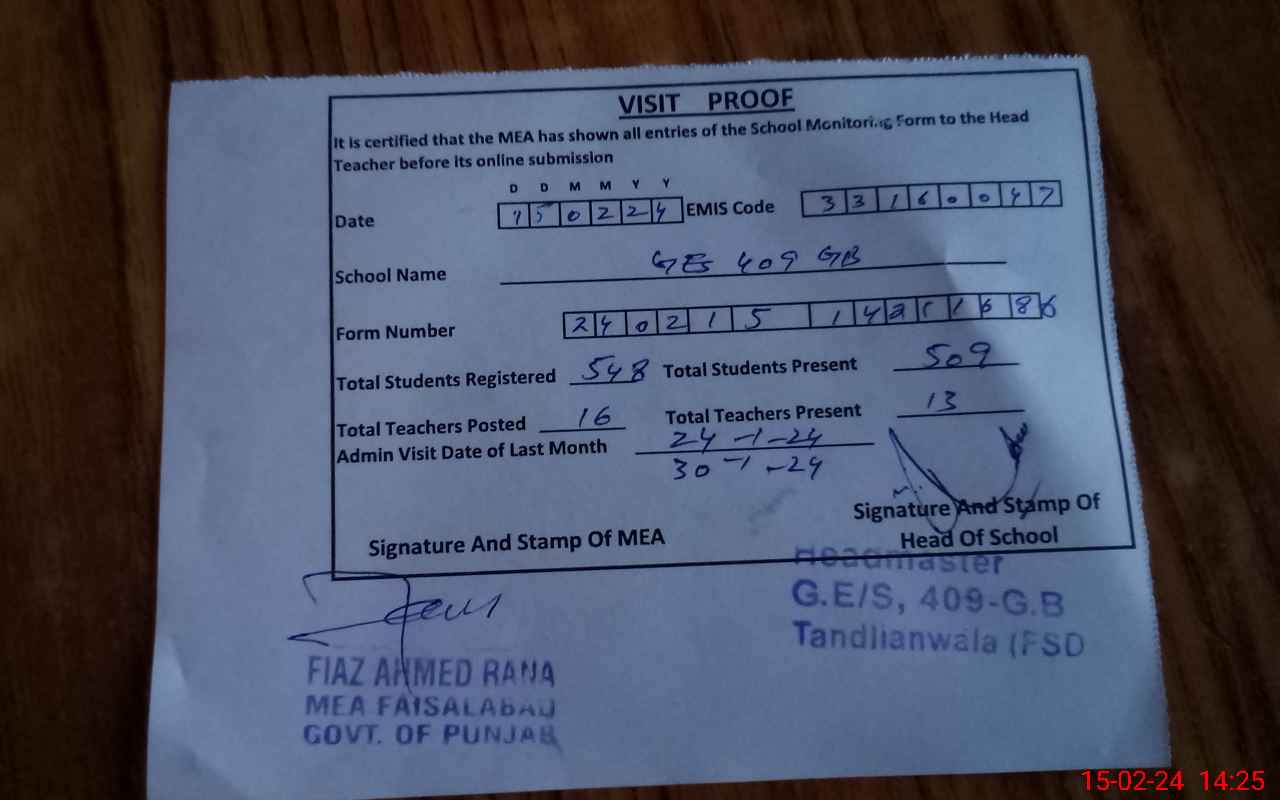 VISIT PROOF
It is certified that the MEA has shown all entries of the School Monitoring Form to the Head
Teacher before its online submission
D D M M Y Y
Date 150224 EMIS Code 33160047
School Name GES 409 GB
Form Number 240215
Total Students Registered 548 Total Students Present 509
Total Teachers Posted 16 Total Teachers Present 13
Admin Visit Date of Last Month 24-1-24
30-1-24
Signature And Stamp Of MEA
Signature And Stamp Of
Head Of School
Headmaster
G.E/S, 409-G.B
Tandlianwala (FSD
FIAZ AHMED RANA
MEA FAISALABAD
GOVT. OF PUNJAB
15-02-24 14:25